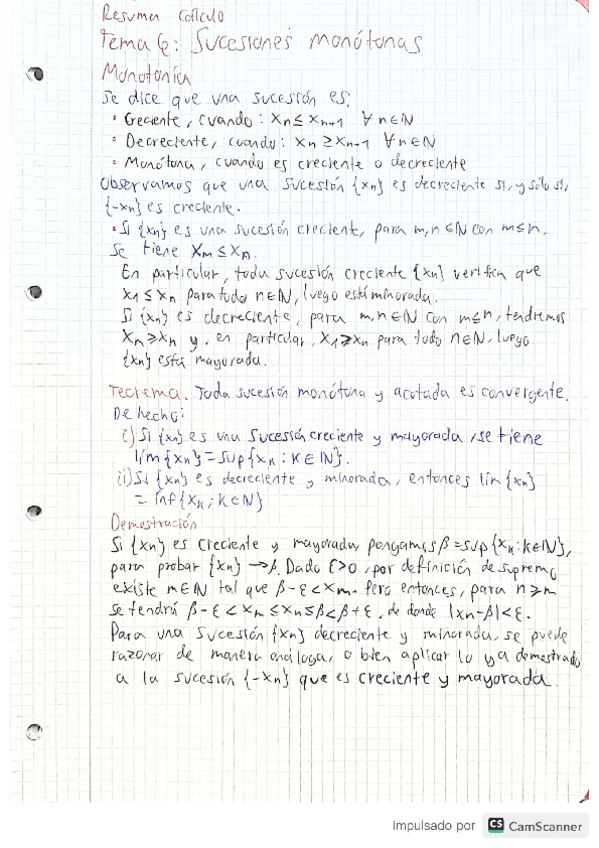 Resumen cálculo
Tema 6: Sucesiones monótonas
Monotonía
Se dice que una sucesión es:
• Creciente, cuando: Xn ≤ Xn+1 ∀n∈ℕ
• Decreciente, cuando: Xn ≥ Xn+1 ∀n∈ℕ
• Monótona, cuando es creciente o decreciente
Observamos que una sucesión {xn} es decreciente si, y sólo si,
{-xn} es creciente.
• Si {xn} es una sucesión creciente, para m,n∈ℕ con m≤n.
Se tiene Xm ≤ Xn.
En particular, toda sucesión creciente {xn} verifica que
x1 ≤ xn para todo n∈ℕ, luego está minorada.
Si {xn} es decreciente, para m,n∈ℕ con m≤n, tendremos
Xm ≥ Xn y, en particular, X1 ≥ xn para todo n∈ℕ, luego
{xn} está mayorada.
Teorema. Toda sucesión monótona y acotada es convergente.
De hecho:
i) Si {xn} es una sucesión creciente y mayorada, se tiene
lím{xn} = sup{xk : k∈ℕ}.
ii) Si {xn} es decreciente y minorada, entonces lím {xn}
= ínf{xk : k∈ℕ}
Demostración
Si {xn} es creciente y mayorada, pongamos β=sup{xk: k∈ℕ},
para probar {xn} → β. Dado ε>0, por definición de supremo
existe m∈ℕ tal que β-ε < xm. Pero entonces, para n≥m
se tendrá β-ε < xm ≤ xn ≤ β < β+ε, de donde |xn-β|<ε.
Para una sucesión {xn} decreciente y minorada, se puede
razonar de manera análoga, o bien aplicar lo ya demostrado
a la sucesión {-xn} que es creciente y mayorada
Impulsado por CS CamScanner